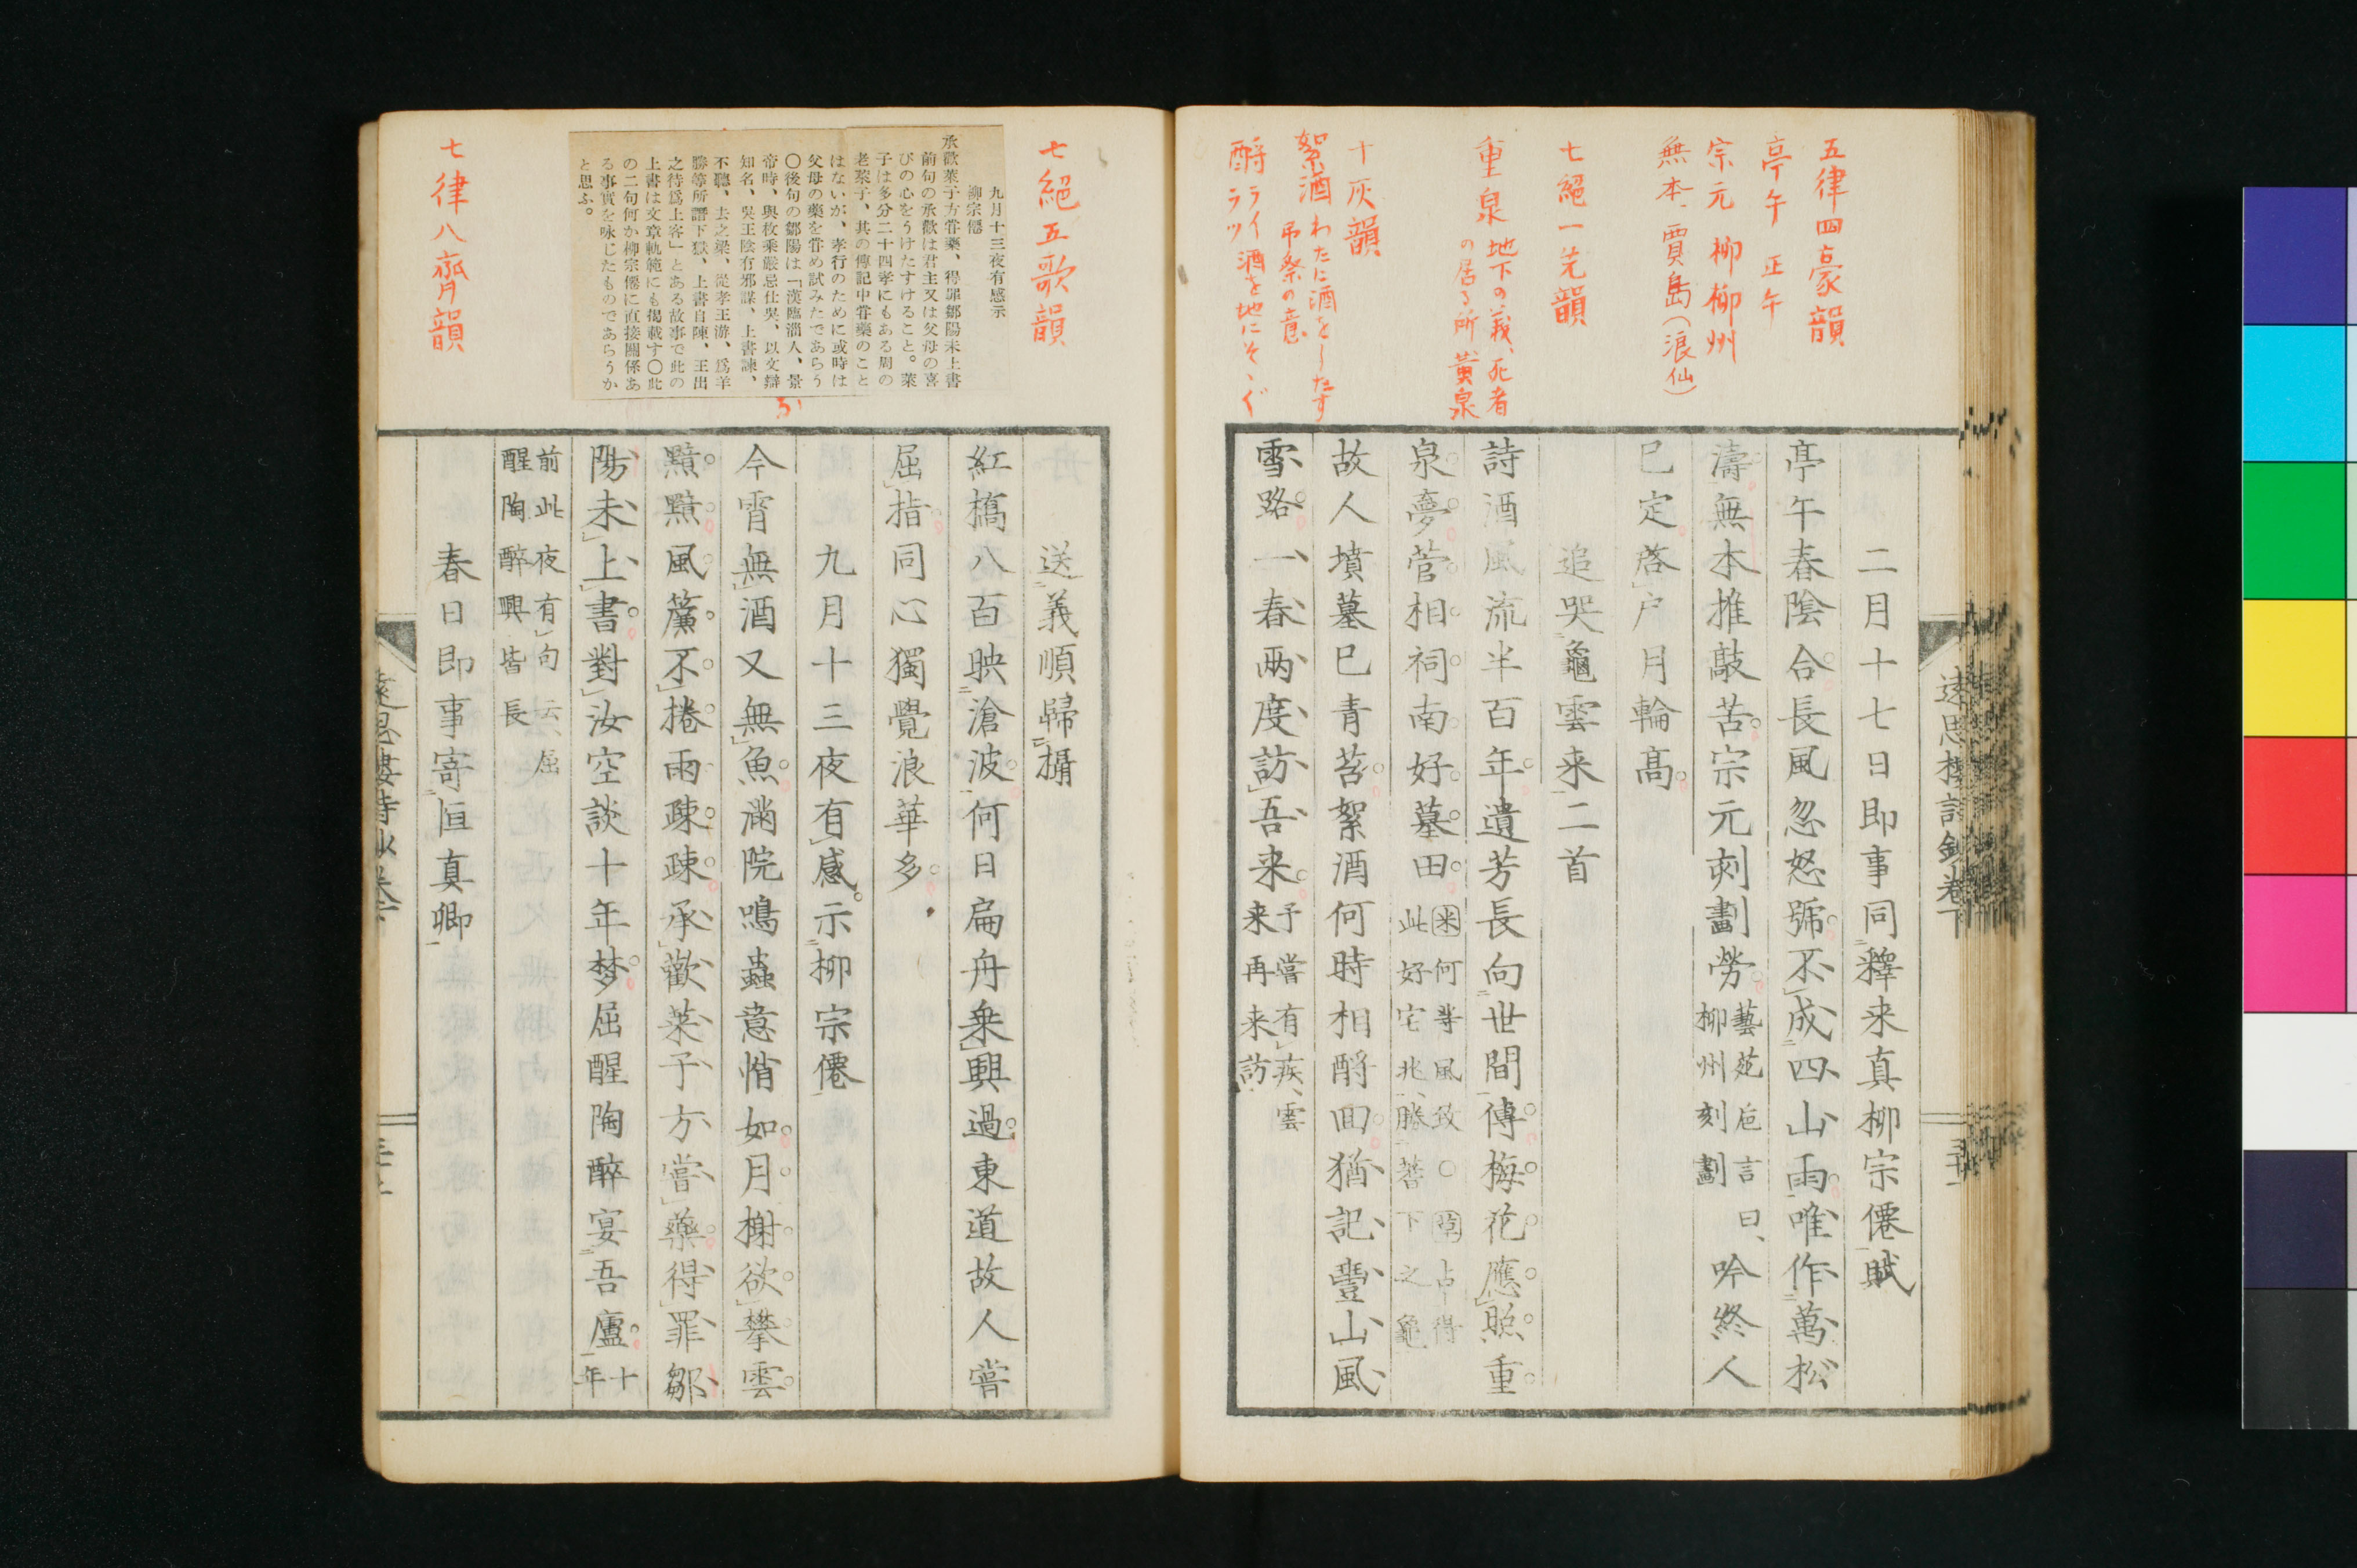 五律四豪韻
亭午 正午
宗元 柳柳州
無本、賈島(浪仙)
七絕一先韻
重泉 地下の義、死者
の居る所、黄泉
十灰韻
絮酒 わたに酒をしたす
弔祭の意
酹 ライ 酒を地にそゝぐ
ラツ
遠思樓詩鈔卷下
二月十七日即事同釋来真柳宗僊賦
亭午春陰合長風忽怒號不成四山雨唯作萬松
濤無本推敲苦宗元刻劃勞
藝苑巵言曰、
柳州刻劃
吟終人
已定啓戸月輪高
追哭龜雲来二首
詩酒風流半百年遺芳長向世間傳梅花應照重
泉夢菅相祠南好墓田
米何等風致〇
占得
此好宅兆、勝蓍下之龜
故人墳墓已青苔絮酒何時相酹回猶記豐山風
雪路一春兩度訪吾来
予嘗有疾、雲
来再来訪
七絕五歌韻
九月十三夜有感示
柳宗僊
承歡萊子方甞藥、得罪鄒陽未上書
前句の承歡は君主又は父母の喜
びの心をうけたすけること。萊
子は多分二十四孝にもある周の
老萊子、其の傳記中甞藥のこと
はないが、孝行のために或時は
父母の藥を甞め試みたであらう
〇後句の鄒陽は「漢臨淄人、景
帝時、與枚乘嚴忌仕吳、以文辯
知名、吳王陰有邪謀、上書諫、
不聽、去之梁、從孝王游、爲羊
勝等所譖下獄、上書自陳、王出
之待爲上客」とある故事で此の
上書は文章軌範にも揭載す〇此
の二句何か柳宗僊に直接關係あ
る事實を咏じたものであらうか
と思ふ。
七律八齊韻
送義順歸攝
紅橋八百映滄波何日扁舟乗興過東道故人嘗
屈指同心獨覺浪華多
九月十三夜有感示柳宗僊
今宵無酒又無魚滿院鳴蟲意惰如月榭欲攀雲
黯黯風簾不捲雨疎疎承歡萊子方嘗藥得罪鄒
陽未上書對汝空談十年梦屈醒陶醉宴吾廬
十
年
前此夜有句云、屈
醒陶醉興皆長
春日即事寄恒真卿